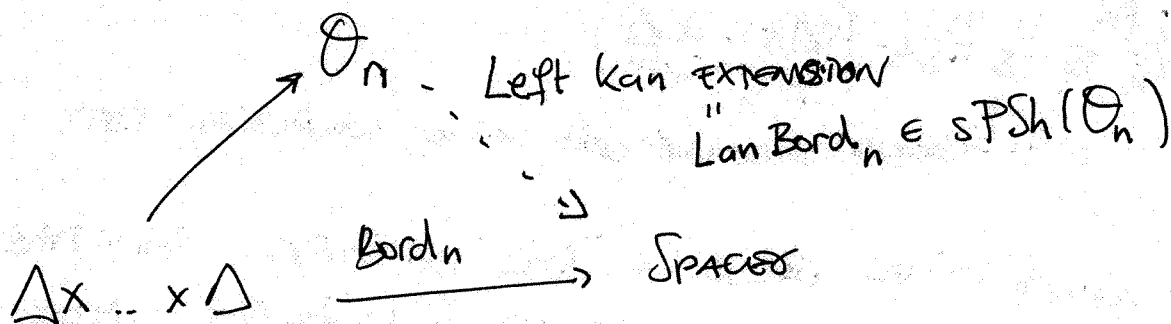 Θn Left Kan EXTENSION
"
Lan Bordn ∈ sPSh(Θn)
Bordn
Δx .. x Δ SPACES